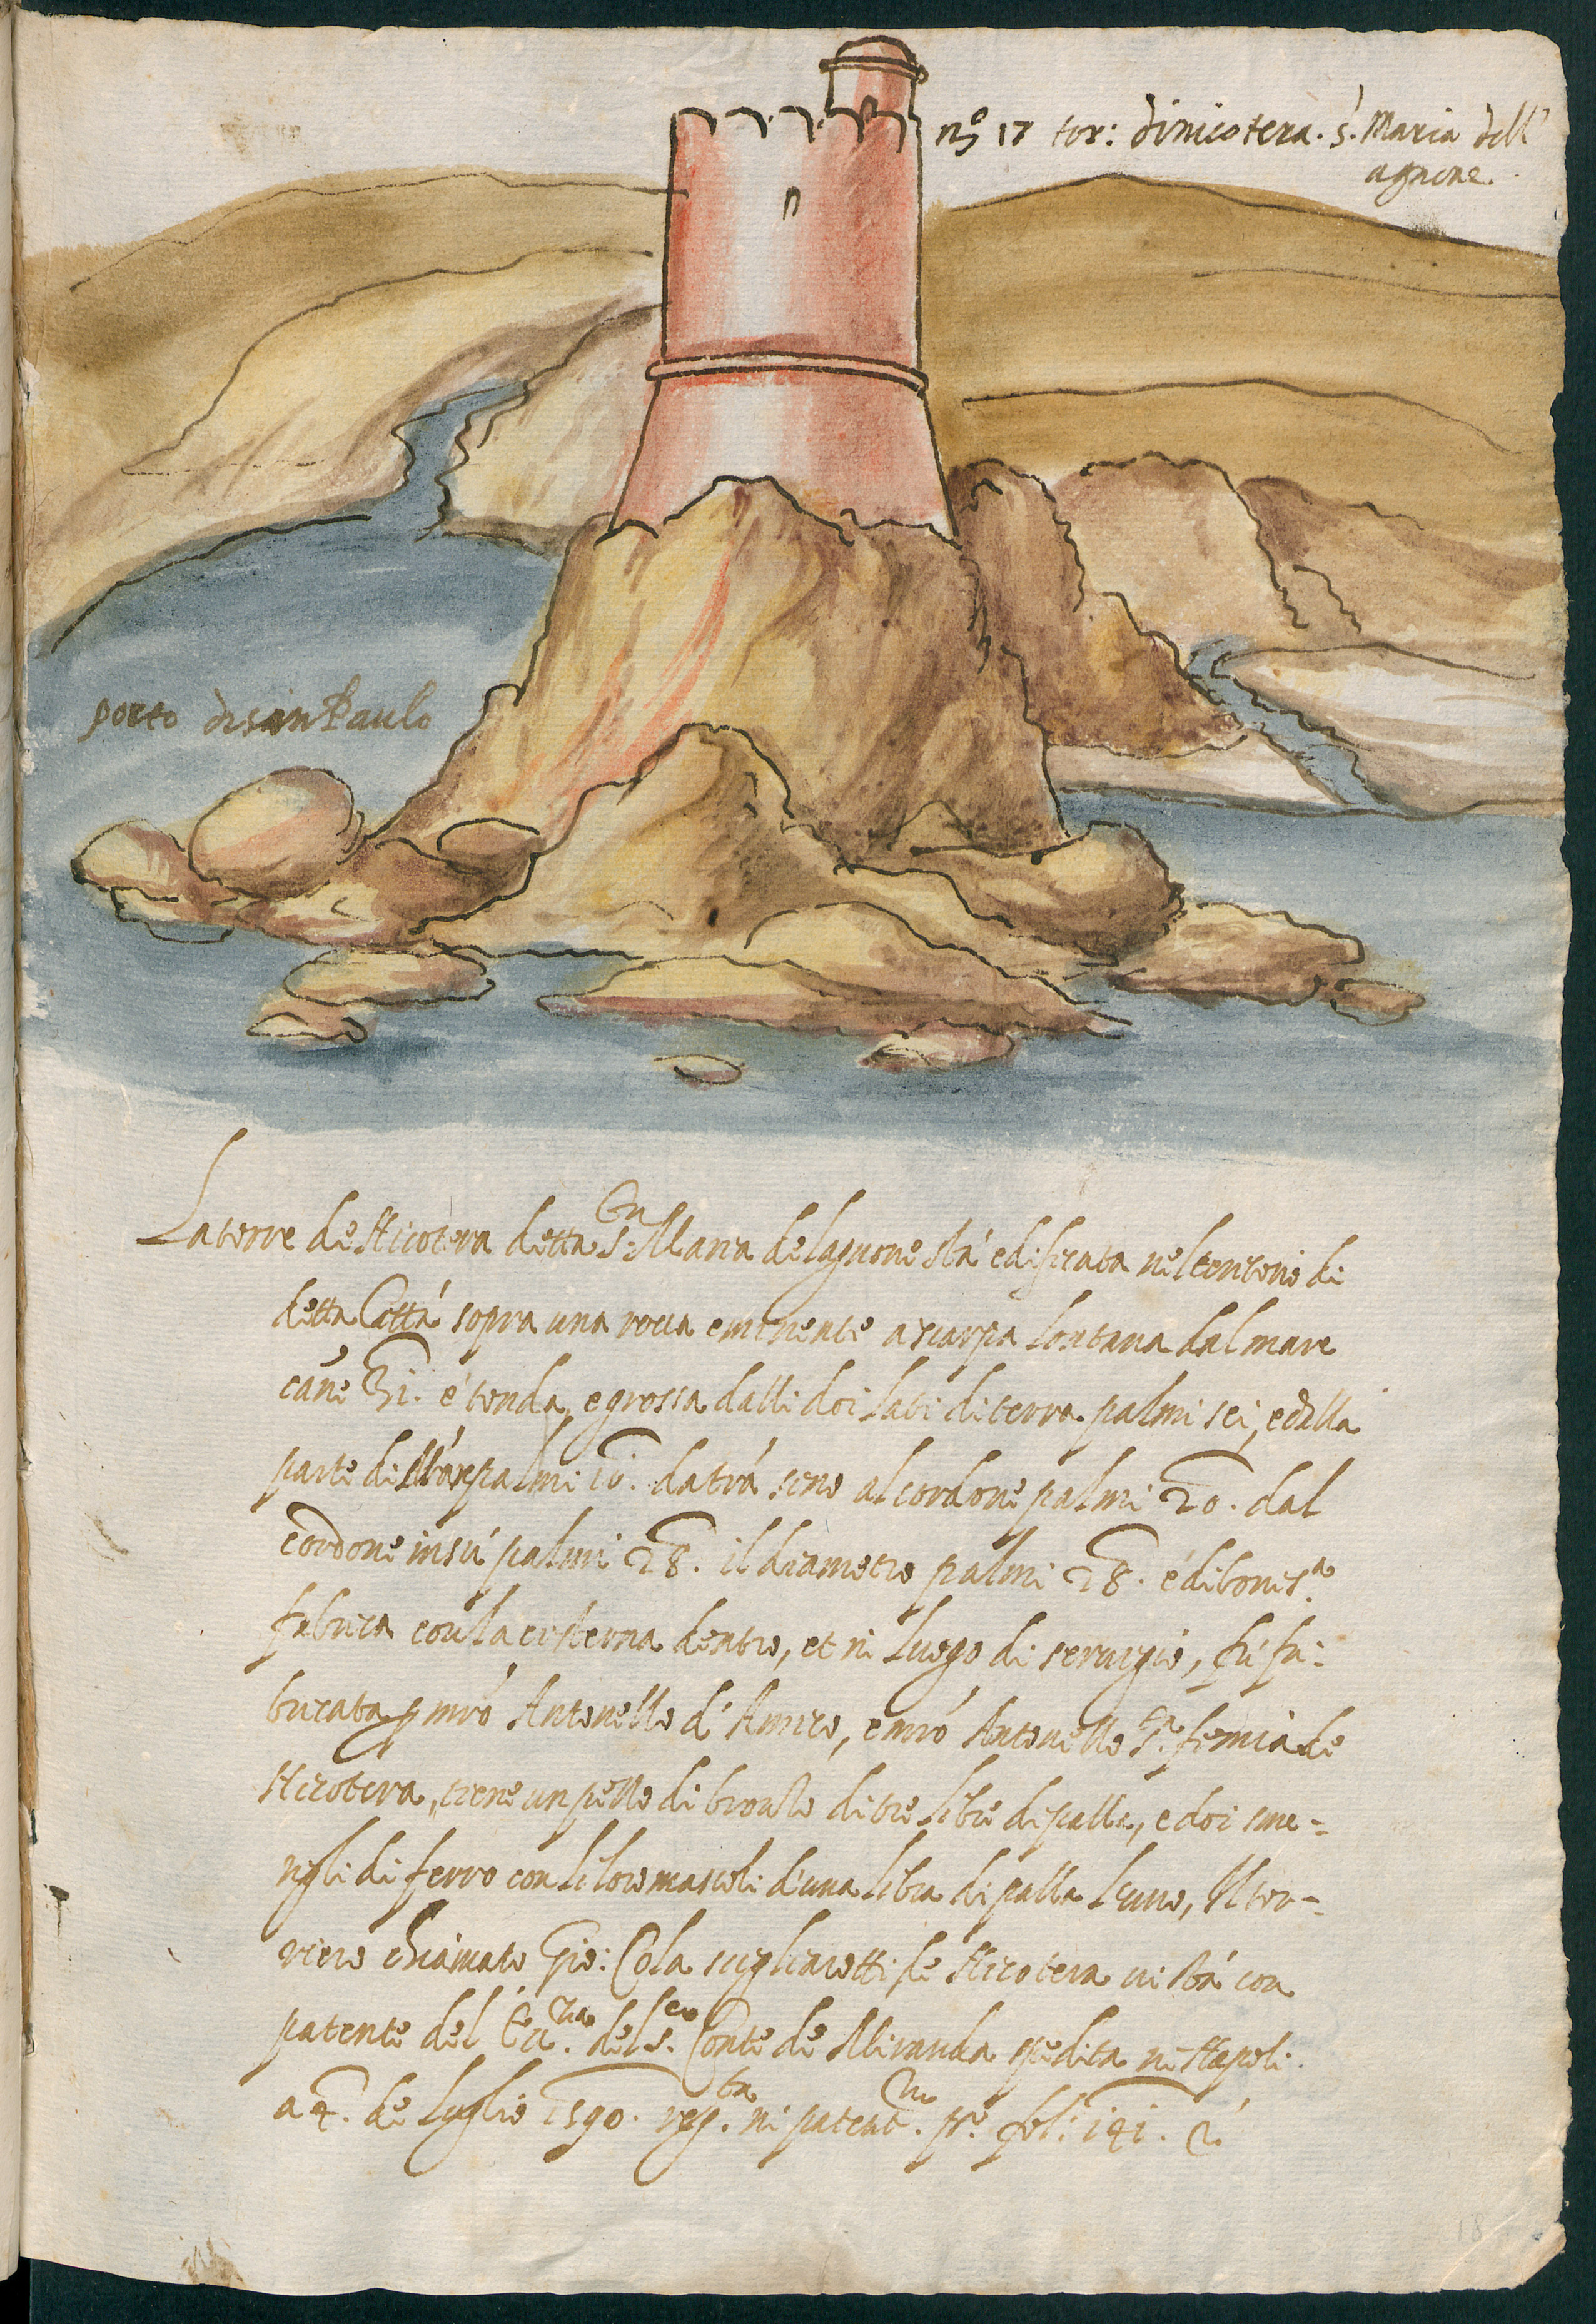 nº 17 tor: dinicotera. S. Maria dell'
agnone.
porto di san Paulo
La torre de Nicotera detta S.ta Maria de lagnone stá edificata nel tenitorio di
detta Cittá sopra una rocca eminente a scarpa lontana dal mare
cañe é tonda, e grossa dalli doi lati di terra palmi sei, e dalla
parte di Mare palmi da trá sino al cordone palmi 20. dal
cordone in sú palmi 28. il diametro palmi 28. é di bonis.a
fabrica con la cisterna dentro, et ni luogo di servigio, fú fa:
bricata p mrõ Antonello d'Amico, e mrõ Antonello S.ta femia de
Nicotera, tiene un pezzo di bronzo di tre libre di palla, e doi sme-
rigli di ferro con li loro mascoli d'una libra di palla l'uno, Il tor-
riero chiamato Gio: Cola de Nicotera vi stá con
patente del Ecc.za del s. Conte de Miranda spedita in Napoli
a 4. de luglio 1590. reg.ta in patent. pº fol: 141.
18